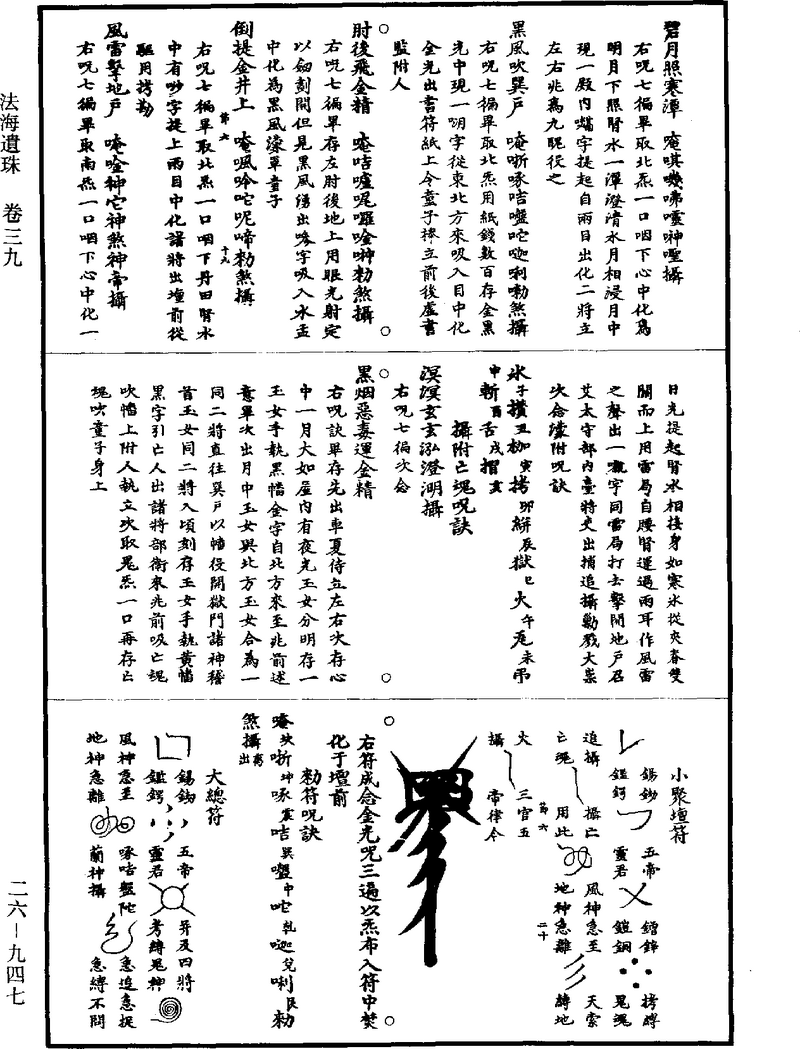 法海遺珠 卷三九
二六－九四七
碧月照寒潭 唵唭㘆咈靈神㘑攝
右呪七徧畢取北炁一口咽下心中化爲
明月下照腎水一潭澄清水月相浸月中
現一殿內蟾字提起自兩目出化二將立
左右兆爲九䏻役之
黑風吹巽戶 唵哳啄咭囓咜唦唎勑煞攝
右呪七徧畢取北炁用紙錢數百存金黑
光中現一明字從東北方來吸入目中化
金光出書符紙上令童子捧立前後虛書
監附人
肘後飛金精 唵咭嚧呢囉唫呻勑煞攝
右呪七徧畢存左肘後地上用眼光射定
以劒刻開但見黑風湧出嘇字吸入水盂
中化爲黑風縧單童子
倒提金井上 唵嘔唫咜呢啼勑煞攝
第六
十九
右呪七徧畢取北炁一口咽下丹田腎水
中有吵字提上兩目中化諸將出壇前從
驅用拷勘
風雷擊地戶 唵唫神它神煞神帝攝
右呪七徧畢取南炁一口咽下心中化一
日光提起腎水相接身如寒水從夾脊雙
關而上用雷局自腰腎運過兩耳作風雷
之聲出一嚫字同雷局打去擊開地戶召
艾太守部內臺將吏出捕追攝勦戮大祟
次念濠附呪訣
水子攢丑枷寅拷卯絣辰獄巳火午㢮未吊
申斬酉舌戌摺亥
攝附亡魂呪訣
溟溟玄玄泓澄湖攝
右呪七徧次念
黑烟惡毒運金精
右呪訣畢存先出車夏侍立左右次存心
中一月大如屋內有夜光玉女分明存一
玉女手執黑幡金字自北方來至兆前述
意畢次出月中玉女與北方玉女合爲一
同二將直往巽戶以幡侵開獄門諸神稽
首玉女同二將入頃刻存玉女手執黃幡
黑字引亡人出諸將部衛來兆前吸亡魂
吹幡上附人執立次取鬼炁一口再存亡
魂吹童子身上
小聚壇符
錫釛 五帝 鐕鋒 拷縛
鎰鍔 靈君 鎧鋼 鬼魂
追攝 攝亡 風神急至 天索
亡魂 用此 地神急離 縛地
第六
二十
火 三官五
攝 帝律令
右符成念金光呪三遍以炁布入符中焚
化于壇前
勑符呪訣
唵坎哳坤啄震咭巽囓中咜乾唦兌唎艮勑
煞攝离出
大總符
錫釛 五帝 昇及四將
鎰鍔 靈君 考縛鬼神
風神急至 啄咭盤陀 急追急捉
地神急離 蘭神攝 急縛不問